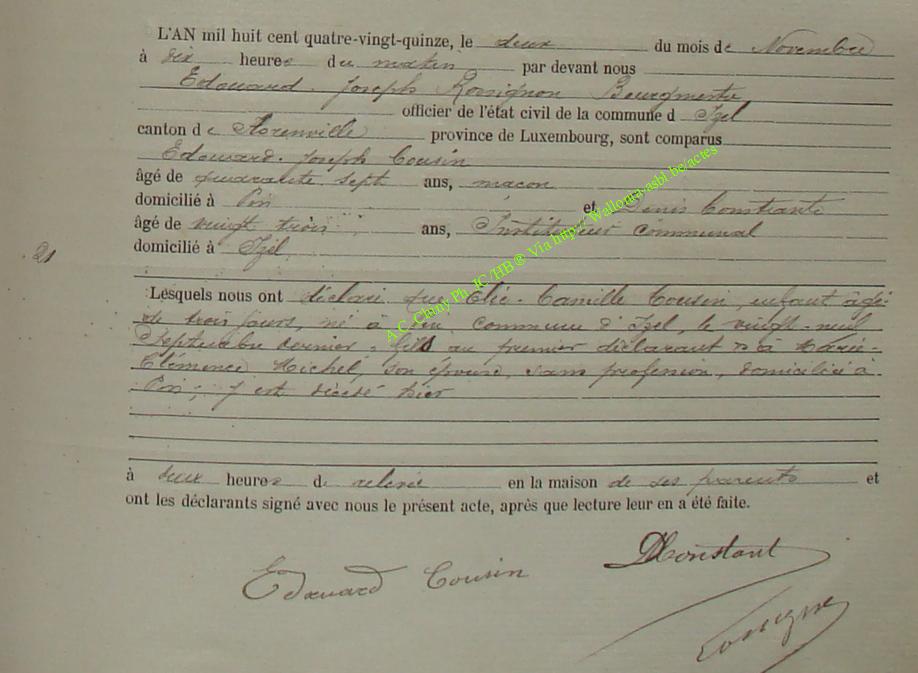 L'AN mil huit cent quatre-vingt-quinze, le deux du mois de Novembre
à dix heures du matin par devant nous
Edouard Joseph Rossignon Bourgmestre
officier de l'état civil de la commune d'Izel
canton de Florenville province de Luxembourg, sont comparus
Edouard Joseph Cousin
âgé de quarante sept ans, maçon
domicilié à Pin et Denis Constant
âgé de vingt trois ans, Instituteur communal
domicilié à Izel
21
Lesquels nous ont déclaré que Elie-Camille Cousin, enfant âgé
de trois jours, né à Pin commune d'Izel, le vingt-neuf
Septembre dernier, fils au premier déclarant & à Marie-
Clémence Michel, son épouse, sans profession, domiciliée à
Pin; y est décédé hier
à deux heures de relevée en la maison de ses parents et
ont les déclarants signé avec nous le présent acte, après que lecture leur en a été faite.
Edouard Cousin DConstant
A.C.-Chiny Ph. JC/HB® Via http://Wallonia-asbl.be/actes